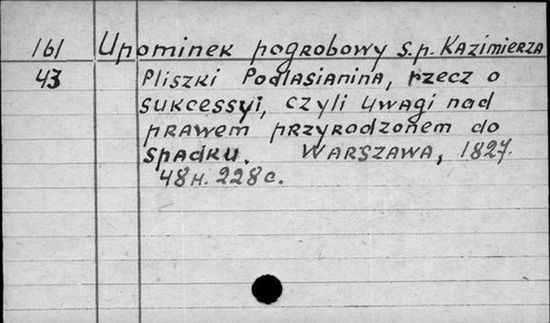 161 Upominek pogrobowy s.p. Kazimierza
43 Pliszki Podlasianina, rzecz o
sukcessyi, czyli uwagi nad
prawem przyrodzonem do
spadku. Warszawa, 1827.
48н. 228с.